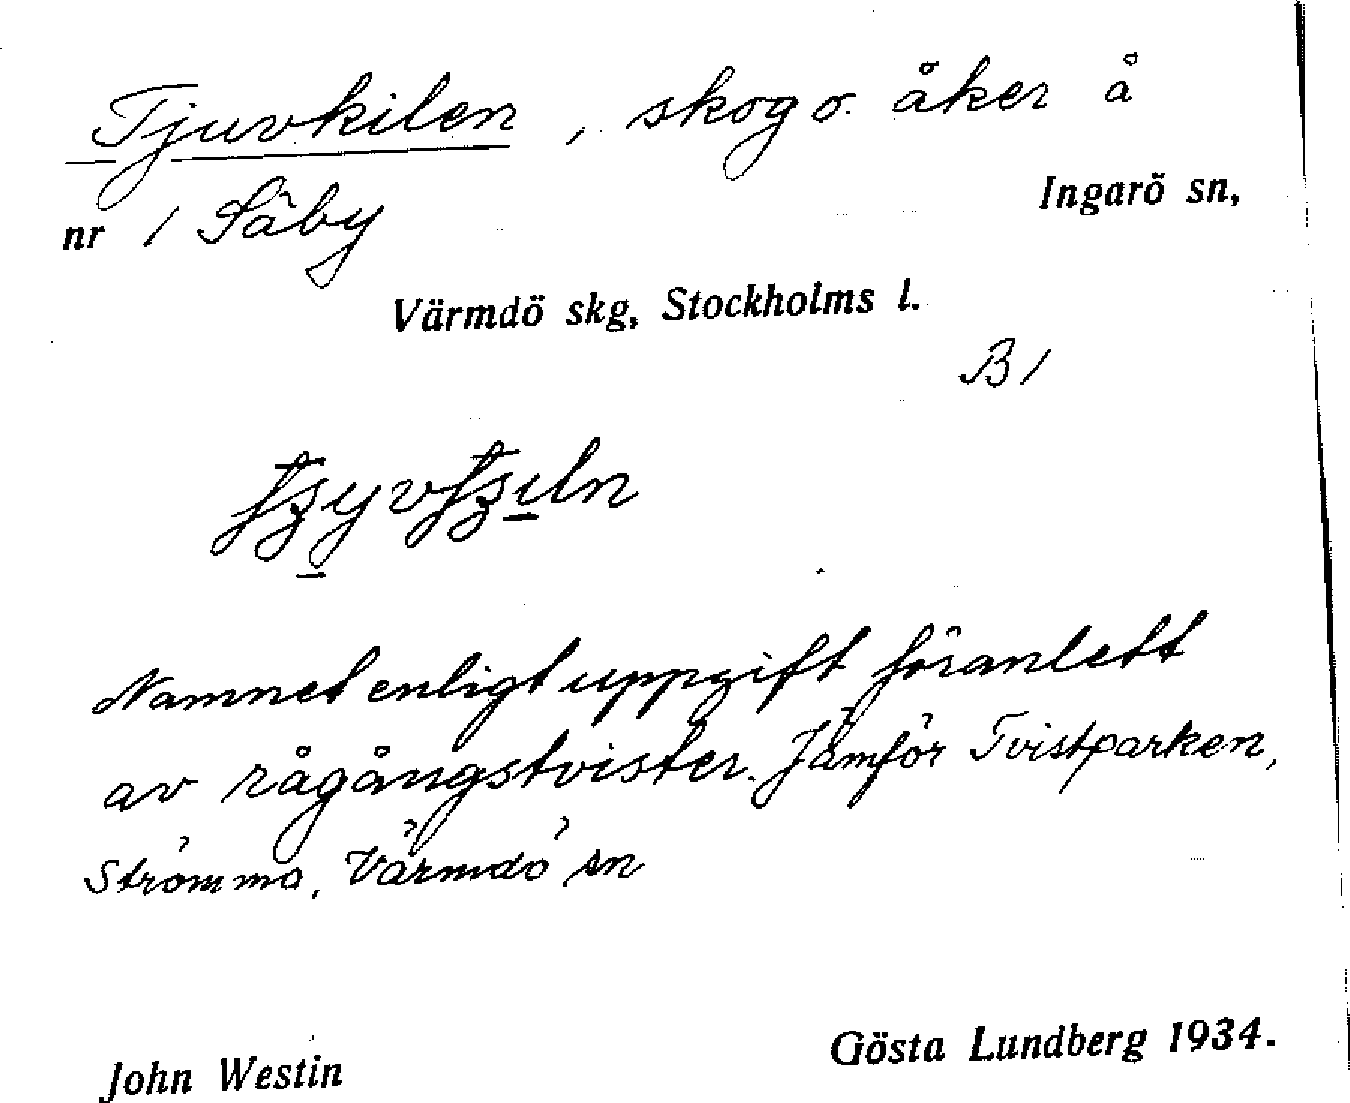 Tjuvkilen, skog o. åker å
Ingarö sn,
nr 1 Säby
Värmdö skg, Stockholms l.
B 1
Namnet enligt uppgift föranlett
av rågångstvister. Jämför Tvistparken,
Strömma, Värmdö sn
John Westin
Gösta Lundberg 1934.